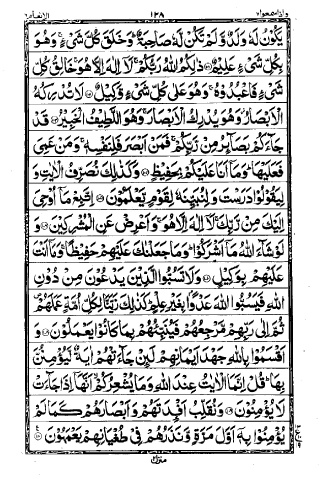 واذاسمعوا ١٢٨ الانعام
يَكُوْنُ لَهٗ وَلَدٌ وَّلَمْ تَكُنْ لَّهٗ صَاحِبَةٌ وَخَلَقَ كُلَّ شَيْءٍ وَهُوَ
بِكُلِّ شَيْءٍ عَلِيْمٌ ذٰلِكُمُ اللّٰهُ رَبُّكُمْ لَآ اِلٰهَ اِلَّا هُوَ خَالِقُ كُلِّ
شَيْءٍ فَاعْبُدُوْهُ وَهُوَ عَلٰى كُلِّ شَيْءٍ وَّكِيْلٌ لَا تُدْرِكُهُ
الْاَبْصَارُ وَهُوَ يُدْرِكُ الْاَبْصَارَ وَهُوَ اللَّطِيْفُ الْخَبِيْرُ قَدْ
جَآءَكُمْ بَصَآئِرُ مِنْ رَّبِّكُمْ فَمَنْ اَبْصَرَ فَلِنَفْسِهٖ وَمَنْ عَمِيَ
فَعَلَيْهَا وَمَآ اَنَا عَلَيْكُمْ بِحَفِيْظٍ وَكَذٰلِكَ نُصَرِّفُ الْاٰيٰتِ وَ
لِيَقُوْلُوْا دَرَسْتَ وَلِنُبَيِّنَهٗ لِقَوْمٍ يَّعْلَمُوْنَ اِتَّبِعْ مَآ اُوْحِيَ
اِلَيْكَ مِنْ رَّبِّكَ لَآ اِلٰهَ اِلَّا هُوَ وَاَعْرِضْ عَنِ الْمُشْرِكِيْنَ وَ
لَوْ شَآءَ اللّٰهُ مَآ اَشْرَكُوْا وَمَا جَعَلْنٰكَ عَلَيْهِمْ حَفِيْظًا وَمَآ اَنْتَ
عَلَيْهِمْ بِوَكِيْلٍ وَلَا تَسُبُّوا الَّذِيْنَ يَدْعُوْنَ مِنْ دُوْنِ
اللّٰهِ فَيَسُبُّوا اللّٰهَ عَدْوًا بِغَيْرِ عِلْمٍ كَذٰلِكَ زَيَّنَّا لِكُلِّ اُمَّةٍ عَمَلَهُمْ
ثُمَّ اِلٰى رَبِّهِمْ مَّرْجِعُهُمْ فَيُنَبِّئُهُمْ بِمَا كَانُوْا يَعْمَلُوْنَ وَ
اَقْسَمُوْا بِاللّٰهِ جَهْدَ اَيْمَانِهِمْ لَئِنْ جَآءَتْهُمْ اٰيَةٌ لَّيُؤْمِنُنَّ
بِهَا قُلْ اِنَّمَا الْاٰيٰتُ عِنْدَ اللّٰهِ وَمَا يُشْعِرُكُمْ اَنَّهَآ اِذَا جَآءَتْ
لَا يُؤْمِنُوْنَ وَنُقَلِّبُ اَفْـِٕدَتَهُمْ وَاَبْصَارَهُمْ كَمَا لَمْ
يُؤْمِنُوْا بِهٖٓ اَوَّلَ مَرَّةٍ وَّنَذَرُهُمْ فِيْ طُغْيَانِهِمْ يَعْمَهُوْنَ